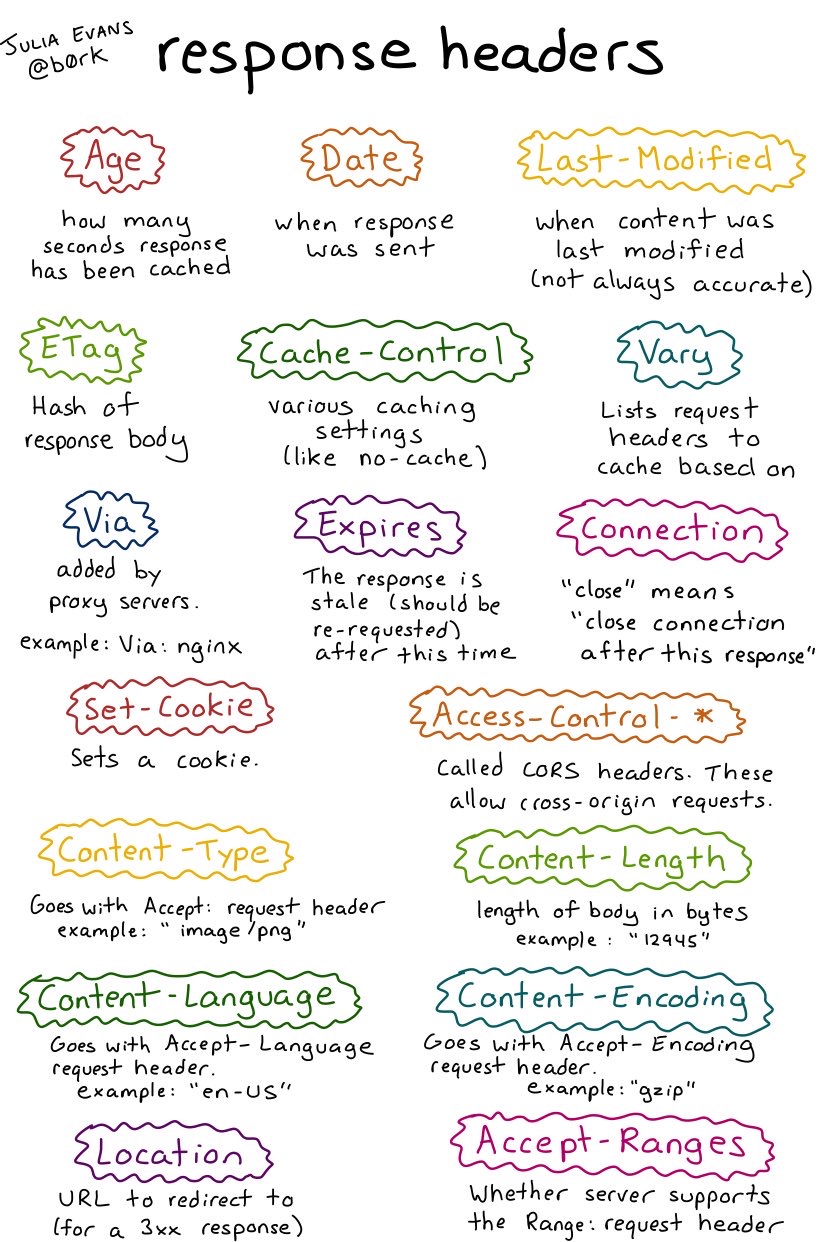 JULIA EVANS
@b0rk
response headers
Age
how many
seconds response
has been cached
Date
when response
was sent
Last-Modified
when content was
last modified
(not always accurate)
ETag
Hash of
response body
Cache-Control
various caching
settings
(like no-cache)
Vary
Lists request
headers to
cache based on
Via
added by
proxy servers.
example: Via: nginx
Expires
The response is
stale (should be
re-requested)
after this time
Connection
"close" means
"close connection
after this response"
Set-Cookie
Sets a cookie.
Access-Control-*
Called CORS headers. These
allow cross-origin requests.
Content-Type
Goes with Accept: request header
example: "image/png"
Content-Length
length of body in bytes
example: "12945"
Content-Language
Goes with Accept-Language
request header.
example: "en-US"
Content-Encoding
Goes with Accept-Encoding
request header.
example: "gzip"
Location
URL to redirect to
(for a 3xx response)
Accept-Ranges
Whether server supports
the Range: request header